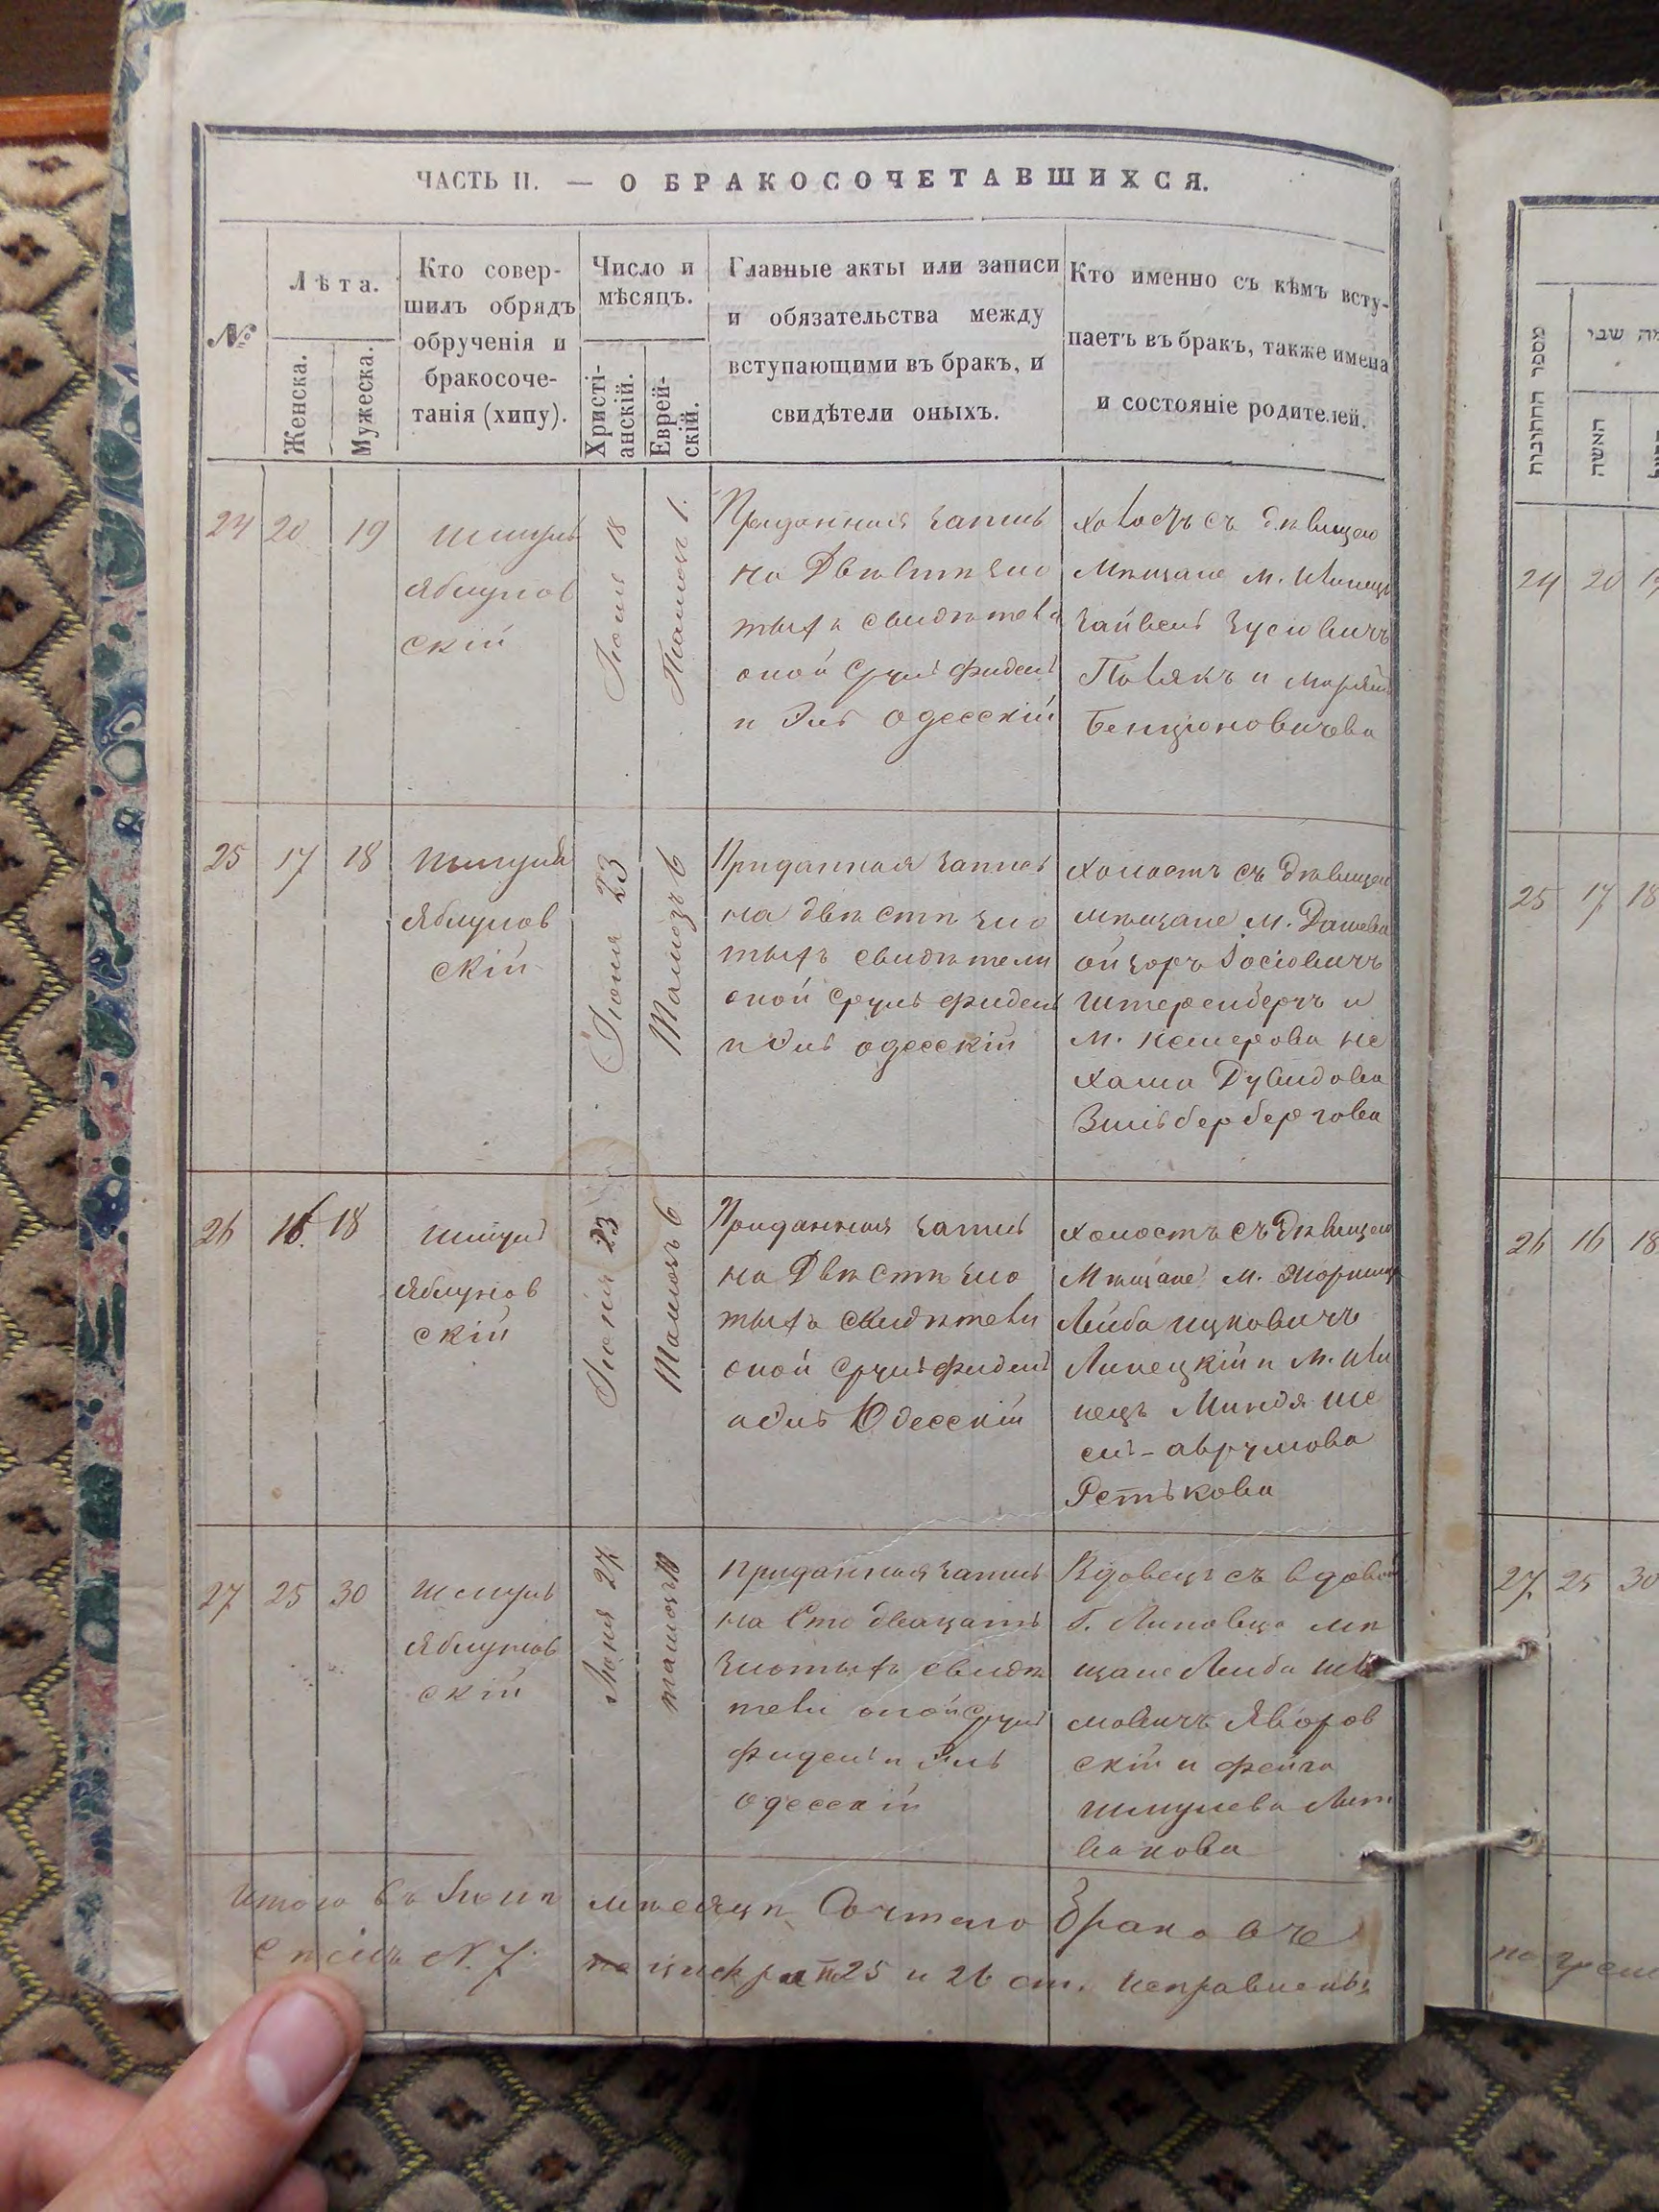 ЧАСТЬ II. — О БРАКОСОЧЕТАВШИХСЯ.
№
Лѣта.
Женска.
Мужеска.
Кто совер-
шилъ обрядъ
обрученія и
бракосоче-
танія (хипу).
Число и
мѣсяцъ.
Христі-
анскій.
Еврей-
скій.
Главные акты или записи
и обязательства между
вступающими въ бракъ, и
свидѣтели оныхъ.
Кто именно съ кѣмъ всту-
паетъ въ бракъ, также имена
и состояніе родителей.
24 20 19
Шмуль
Яблунов
скій
Іюня 18
Тамозъ 1.
Приданная запись
на Двѣсти зло
тыхъ свидѣтели
оной Сруль Фидель
и Эль Одесскій
холостъ съ дѣвицею
Мѣщане м. Илинцъ
Зайвель Зусіовичъ
Полякъ и
Бенціоновичева
25 17 18
Шмуль
Яблунов
скій
Іюня 23
Тамозъ 6
Приданная запись
на двѣсти зло
тыхъ свидѣтели
оной Сруль Фидель
и Эль Одесскій
Холостъ съ дѣвицею
мѣщане м. Дашева
Ойзоръ Іосіовичъ
Штеренберъ и
м. Кашерова Не
хама Дувидова
Зильбербергова
26 16 18
Шмуль
Яблунов
скій
Іюня 23
Тамозъ 6
Приданная запись
на Двѣсти зло
тыхъ свидѣтели
оной Сруль Фидель
и Эль Одесскій
холостъ съ дѣвицею
Мѣщане м. Жорнищъ
Лейба Ицковичъ
Липецкій и м. Или
нецъ Миндя Ше
сель-Аврумова
Ретькова
27 25 30
Шмуль
Яблунов
скій
Іюня 27
Тамозъ 10
Приданная запись
на Сто двацать
злотыхъ свидѣ
тели оной Сруль
Фидель и Эль
Одесскій
Вдовецъ съ вдовой
г. Липовца мѣ
щане Лейба
мовичъ Яворов
скій и Фейга
Шмулева Лит
вакова
Итого въ Іюнѣ мѣсяцѣ Сочтено Браковъ
Семь N. 7. цифра 25 и 26 ст. исправленны
מספר החתונות
האשה
24 20
25 17 18
26 16 18
27 25 30